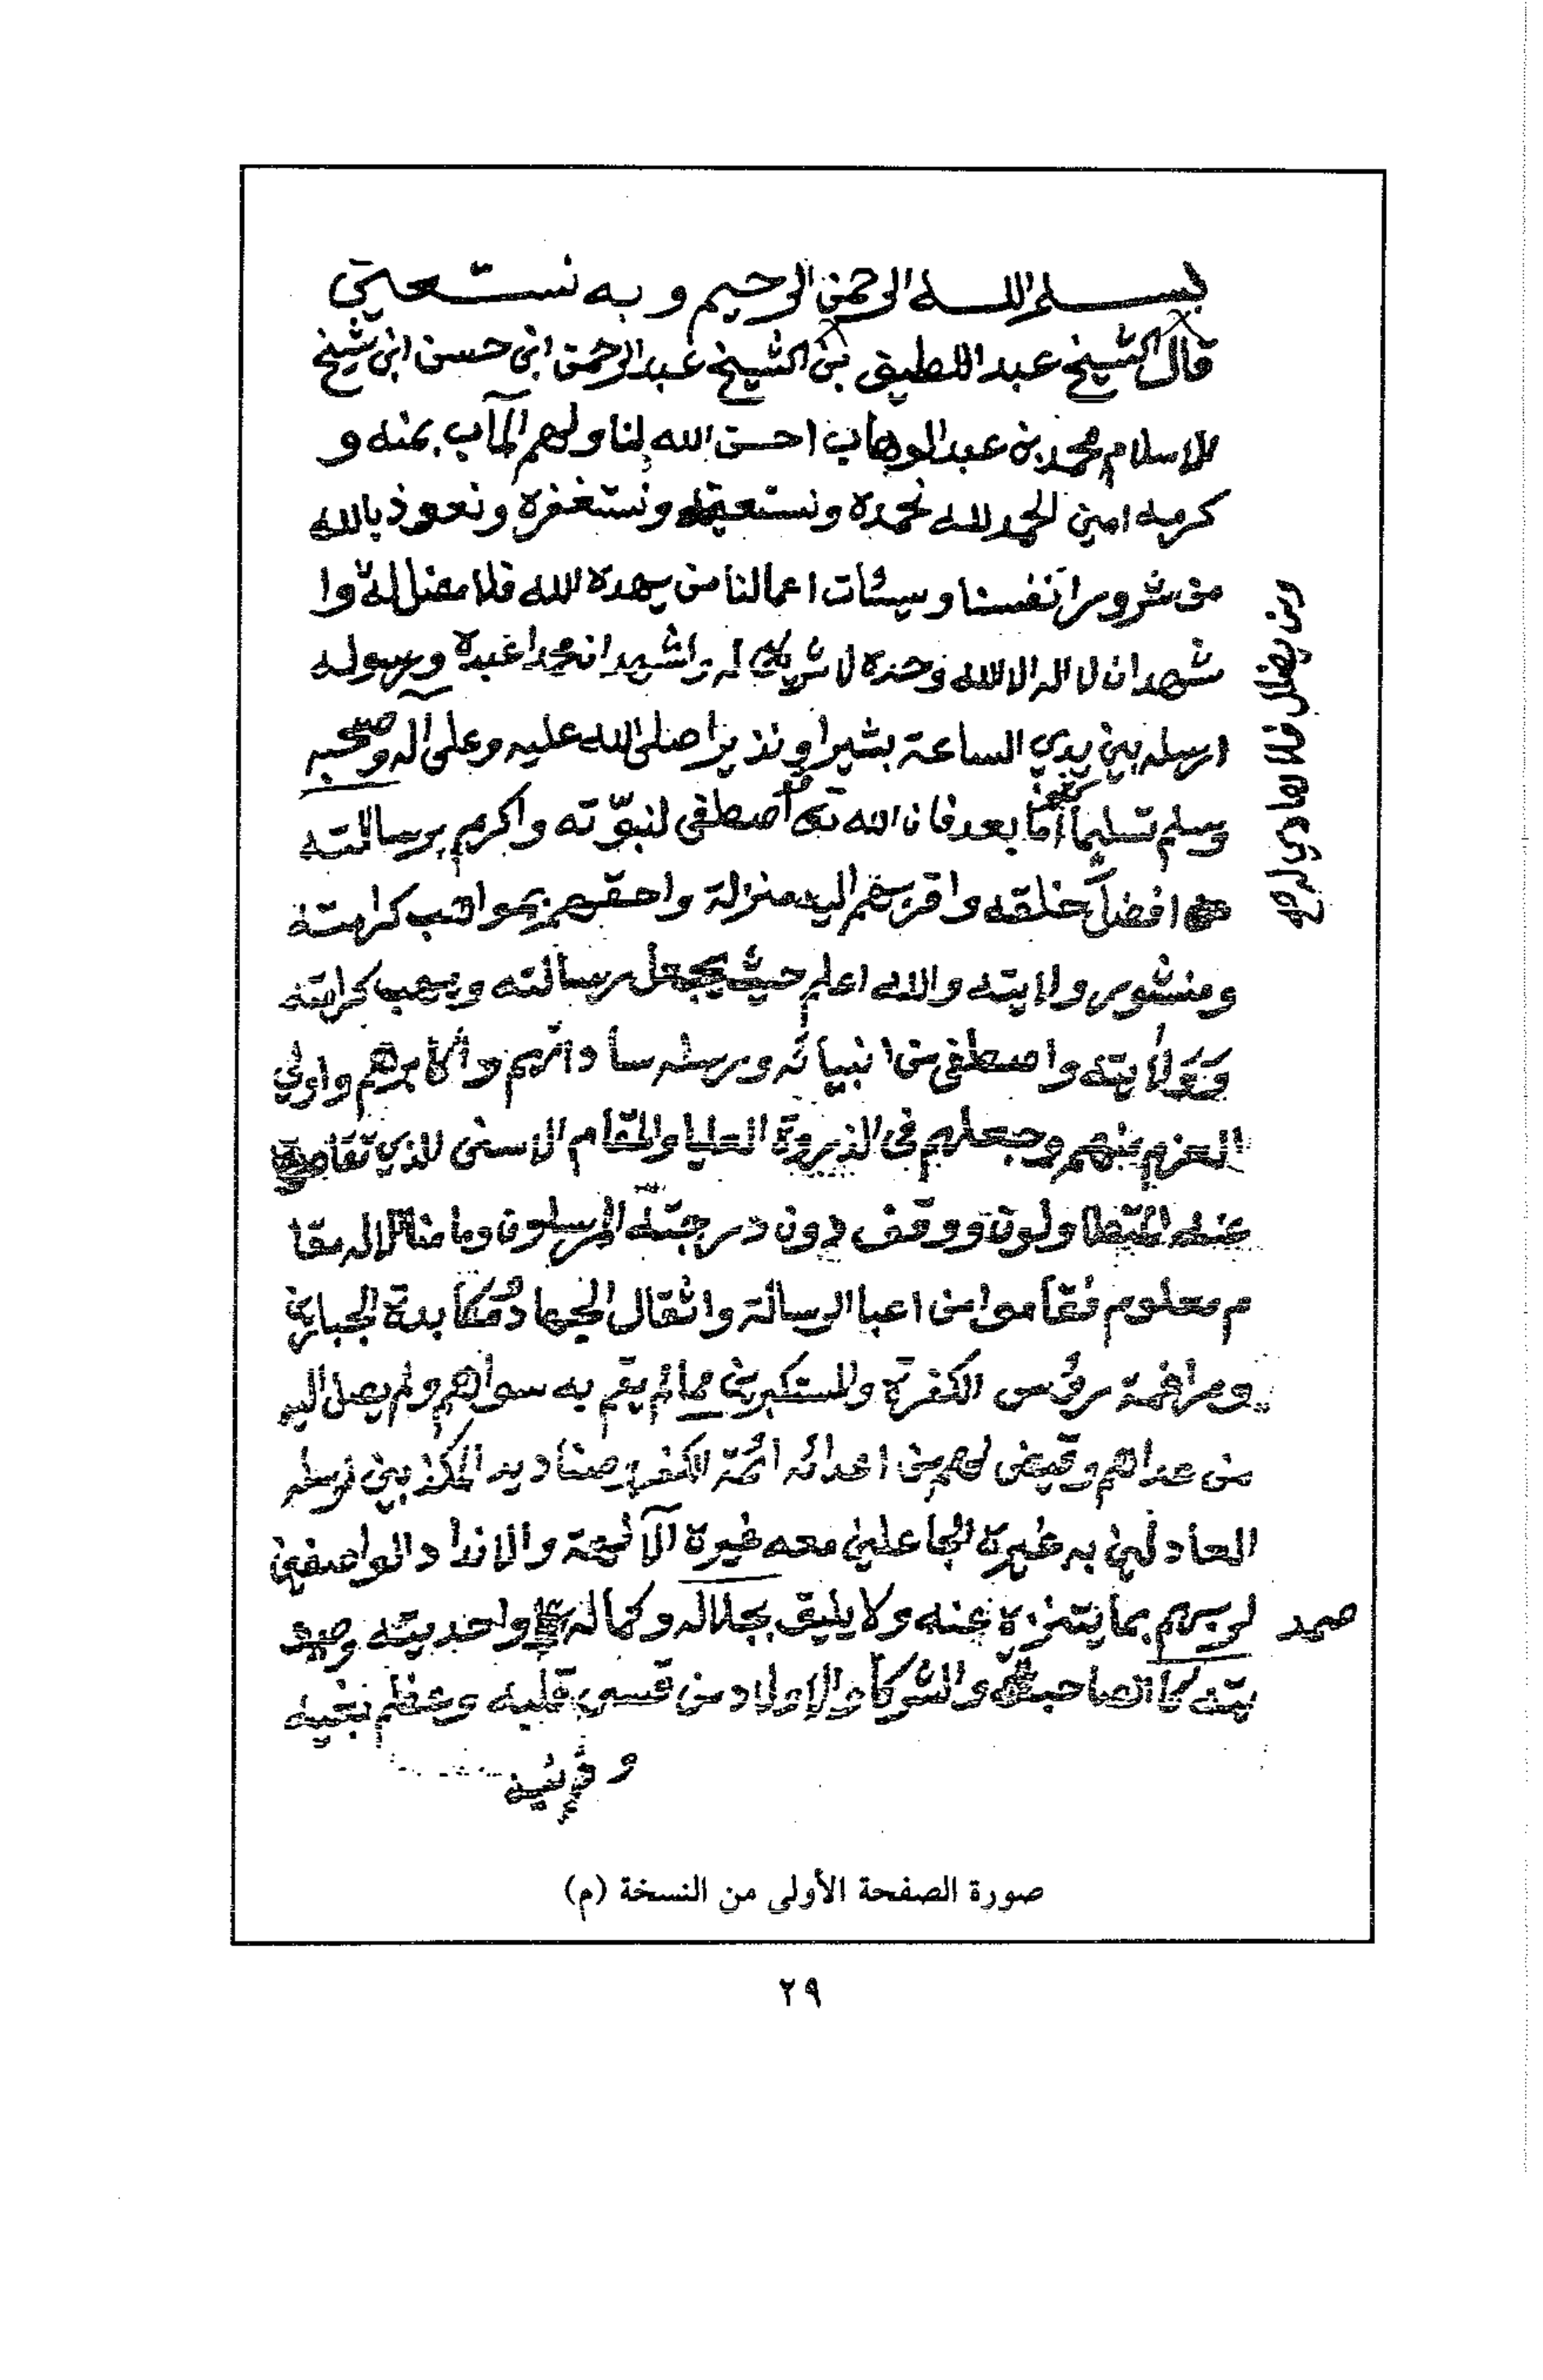 بسم الله الرحمن الرحيم وبه نستعين
قال الشيخ عبد اللطيف بن الشيخ عبد الرحمن ابن حسن ابن شيخ
الاسلام محمد بن عبد الوهاب احسن الله لنا ولهم المآب بمنه و
كرمه امين الحمد لله نحمده ونستعينه ونستغفره ونعوذ بالله
من شرور انفسنا وسيئات اعمالنا من يهده الله فلا مضل له وا
شهد ان لا اله الا الله وحده لا شريك له واشهد ان محمدا عبده ورسوله
ارسله بين يدي الساعة بشيرا ونذيرا صلى الله عليه وعلى آله وصحبه
وسلم تسليما اما بعد فان الله اصطفى لنبوّته واكرم برسالته
افضل خلقه واقربهم اليه منزلة واحقهم بمواهب كرامته
ومنشور ولايته والله اعلم حيث يجعل رسالته ويهب كرامته
وولايته واصطفى من انبيائه ورسله ساداتهم واكابرهم واولي
العزم منهم وجعلهم في الذروة العليا والمقام الاسنى الذي تقاصر
عنه المتطاولون ووقف دون درجته المرسلون وما منا الا له مقا
م معلوم فقاموا من اعبا الرسالة واثقال الجهاد ومكابدة الجبابرة
ومراغمة رؤس الكفرة والمستكبرين مما لم يقم به سواهم ولم يصل اليه
من عداهم وقيض لهم من اعدائه ائمة الكفر وصناديد المكذبين لرسله
العادلين به غيره الجاعلين معه غيره الآلهة والانداد الواصفين
لربهم بما يتنزه عنه ولا يليق بجلاله وكماله واحديته وصمد
يته كالصاحبة والشركا والاولاد من قسى قلبه وعظم
ومن يضلل فلا هادي له صح
صمد
صورة الصفحة الأولى من النسخة (م)
٢٩